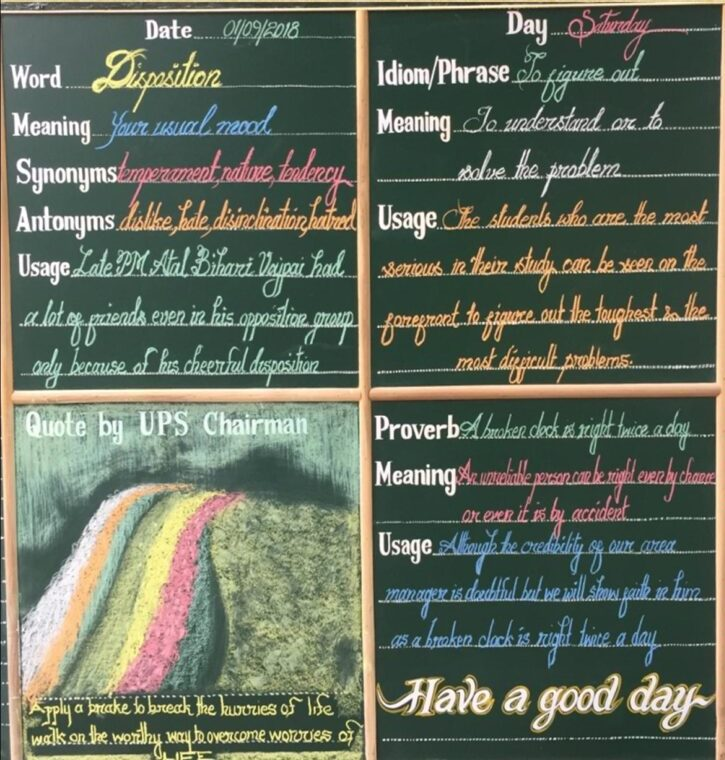 Date 01/09/2018
Word Disposition
Meaning Your usual mood
Synonyms temperament, nature, tendency
Antonyms dislike, hate, disinclination, hatred
Usage Late PM Atal Bihari Vajpai had
a lot of friends even in his opposition group
only because of his cheerful disposition
Day Saturday
Idiom/Phrase To figure out
Meaning To understand or to
solve the problem
Usage The students who are the most
serious in their study can be seen on the
forefront to figure out the toughest & the
most difficult problems.
Quote by UPS Chairman
Apply a brake to break the hurries of life
walk on the worthy way to overcome worries of
LIFE
Proverb A broken clock is right twice a day
Meaning An unreliable person can be right even by chance
or even it is by accident
Usage Although the credibility of our area
manager is doubtful but we will show faith in him
as a broken clock is right twice a day
Have a good day